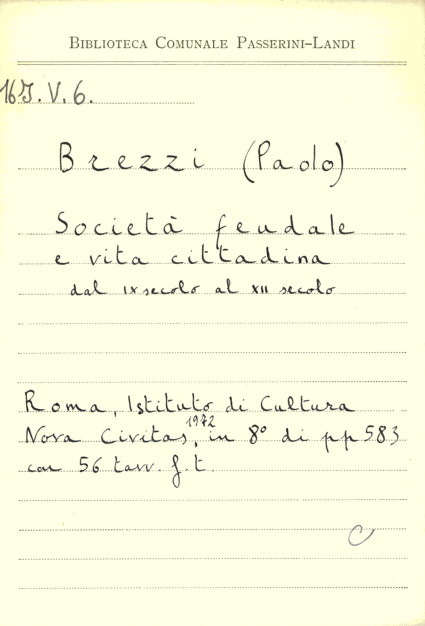 BIBLIOTECA COMUNALE PASSERINI-LANDI
16J.V.6.
Brezzi (Paolo)
Società feudale
e vita cittadina
dal IX secolo al XII secolo
Roma, Istituto di Cultura
Nova Civitas, 1972, in 8° di pp 583
con 56 tavv. f.t.
C